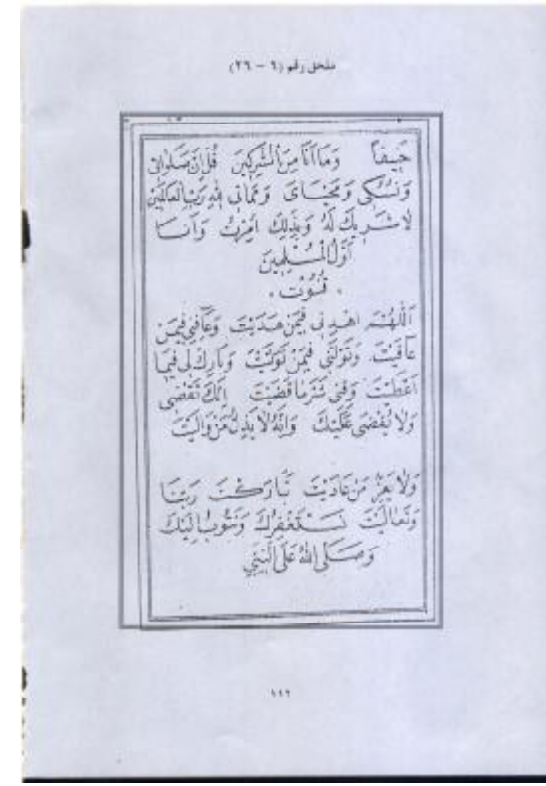 ملحق رقم (٦ - ٢٦)
حَنِيفاً وَمَا أَنَا مِنَ الْمُشْرِكِينَ قُلْ إِنَّ صَلَوَاتِى
وَنُسُكِى وَمَحْيَاىَ وَمَمَاتِى لِلَّهِ رَبِّ الْعَالَمِينَ
لَا شَرِيكَ لَهُ وَبِذَلِكَ أُمِرْتُ وَأَنَا
أَوَّلُ الْمُسْلِمِينَ
قُنُوْت
اَللّٰهُمَّ اهْدِنِى فِيمَنْ هَدَيْتَ وَعَافِنِى فِيمَنْ
عَافَيْتَ وَتَوَلَّنِى فِيمَنْ تَوَلَّيْتَ وَبَارِكْ لِى فِيمَا
اَعْطَيْتَ وَقِنِى شَرَّ مَا قَضَيْتَ اِنَّكَ تَقْضِى
وَلَا يُقْضَى عَلَيْكَ وَاِنَّهُ لَا يَذِلُّ مَنْ وَالَيْتَ
وَلَا يَعِزُّ مَنْ عَادَيْتَ تَبَارَكْتَ رَبَّنَا
وَتَعَالَيْتَ نَسْتَغْفِرُكَ وَنَتُوبُ اِلَيْكَ
وَصَلَّى اللهُ عَلَى النَّبِيِّ
١٤٢